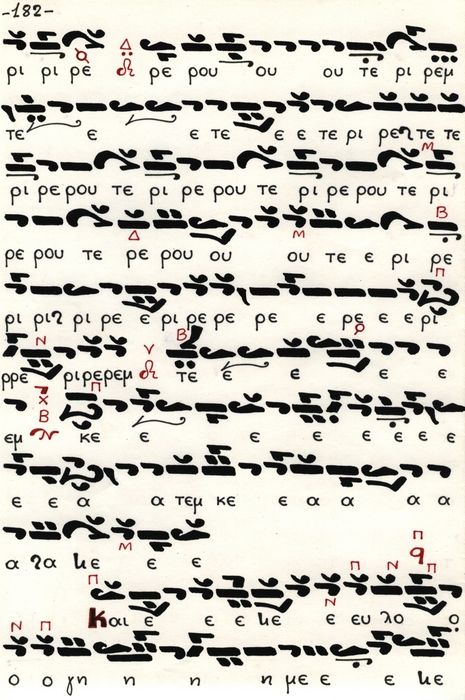 -182-
ρι ρι ρε ρε ρου ου ου τε ρι ρεμ
τε ε ε τε ε ε τε ρι ρε τε τε
ρι ρε ρου τε ρι ρε ρου τε ρι ρε ρου τε ρι
ρε ρου τε ρε ρου ου ου τε ε ρι ρε
ρι ρι ρι ρε ε ρι ρε ρε ρε ε ρε ε ε ρι
ρρε ρι ρε ρεμ τε ε ε ε ε ε
εμ κε ε ε ε ε ε ε ε
ε ε α α τεμ κε ε α α α α
α α κε ε ε
Και ε ε ε κε ε ευ λο ο
ο ο γη η η η με ε ε κε